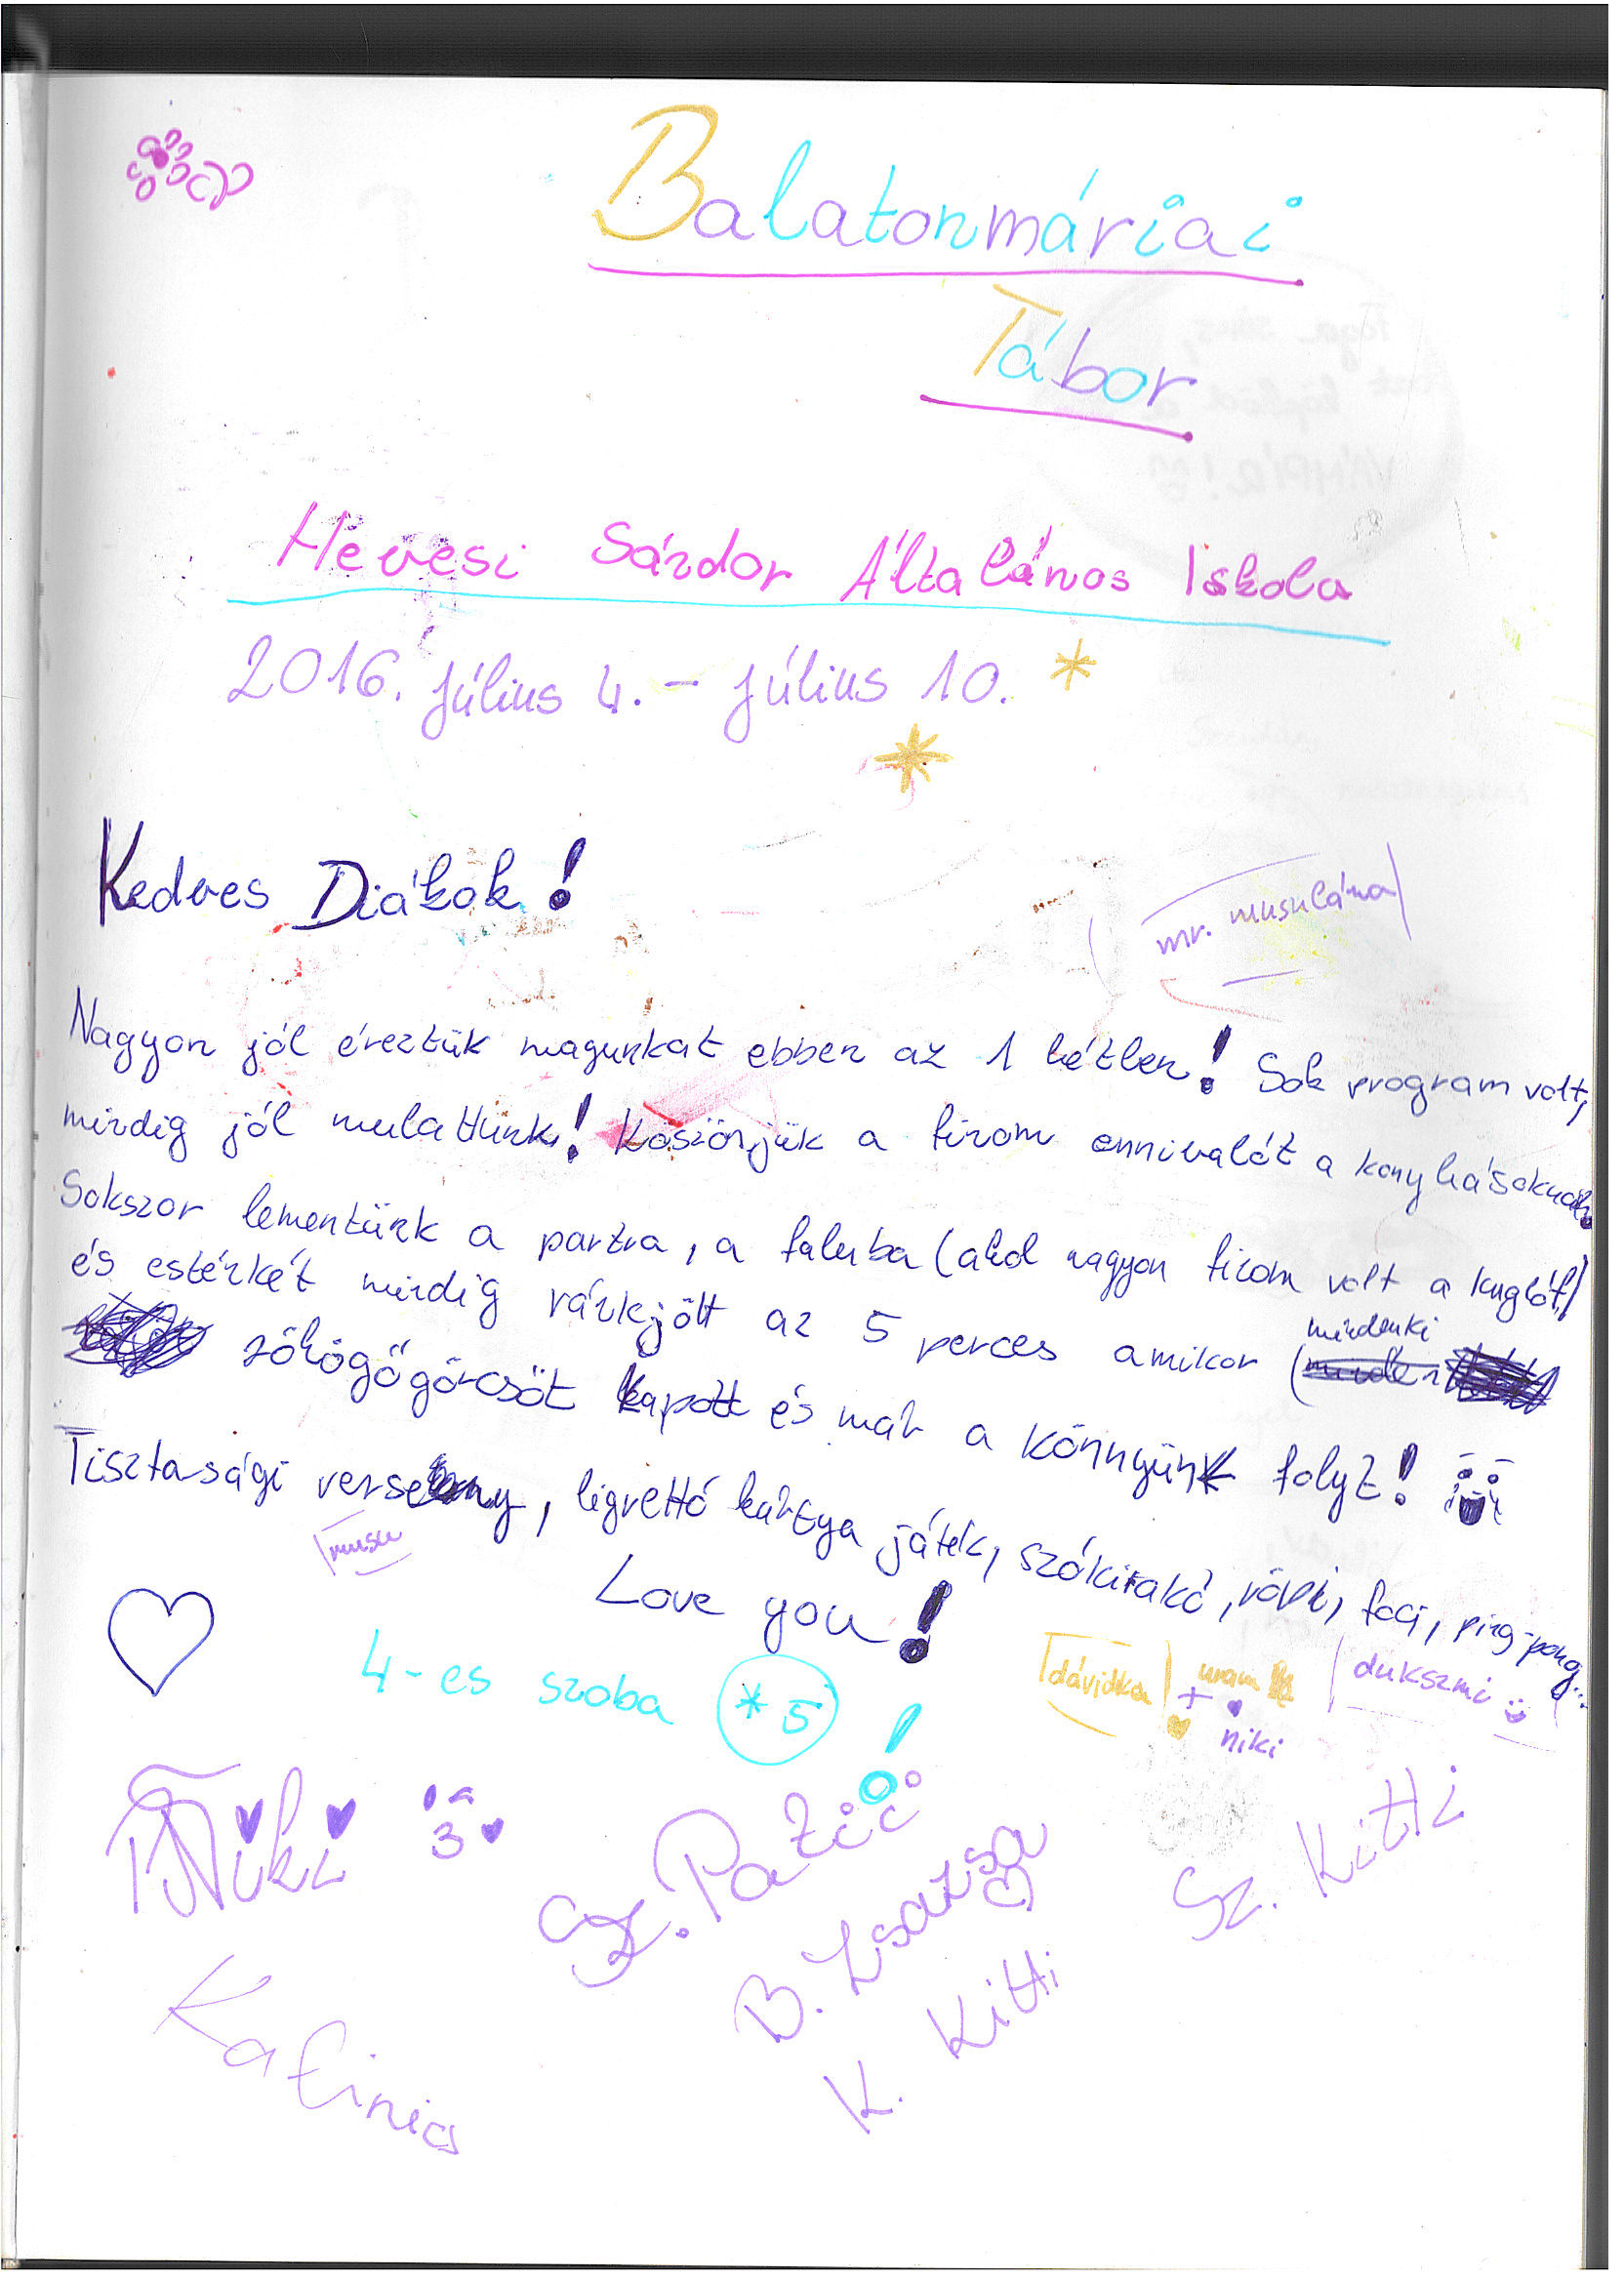 Balatonmáriai
Tábor
Hevesi Sándor Általános Iskola
2016. július 4. - július 10.
Kedves Diákok!
mr. musulána
Nagyon jól éreztük magunkat ebben az 1 hétben! Sok program volt,
mindig jól mulattunk! Köszönjük a finom ennivalót a konyhásoknak.
Sokszor lementünk a partra, a faluba (ahol nagyon finom volt a kuglóf)
és esténként mindig ránkjött az 5 perces amikor (mindenki
röhögőgörcsöt kapott és már a könnyünk folyt!
Tisztasági verseny, ligrettó kártya játék, szókirakó, röpi, foci, ping-pong...
musu
Love you!
4-es szoba *5!
dávidka + uram niki
dukszmi
Niki
Sz. Patiii
B. Zsazsa
Sz. Kitti
K. Kitti
Kafinia